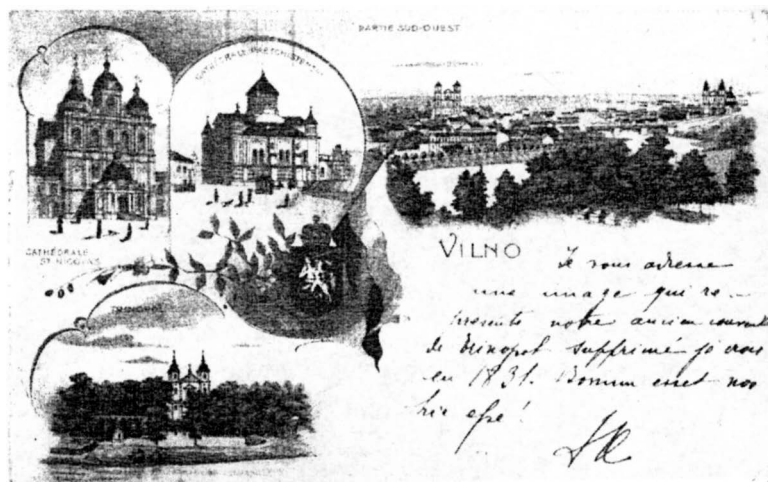 PARTIE SUD-OUEST
CATHÉDRALE PRETCHISTENSKY
CATHÉDRALE
ST. NICOLAS
TRINOPOL
VILNO
Je vous adresse
une image qui re-
présente notre ancien couvent
de Trinopol supprimé je crois
en 1831. Bonum esset nos
hic esse!